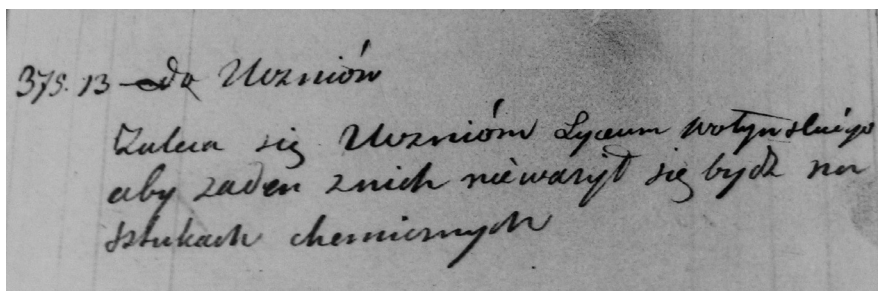 375. 13 — Do Uczniów
Zaleca się Uczniom Lyceum Wołyńskiego
aby żaden znich nieważył się bydź na
sztukach chemicznych